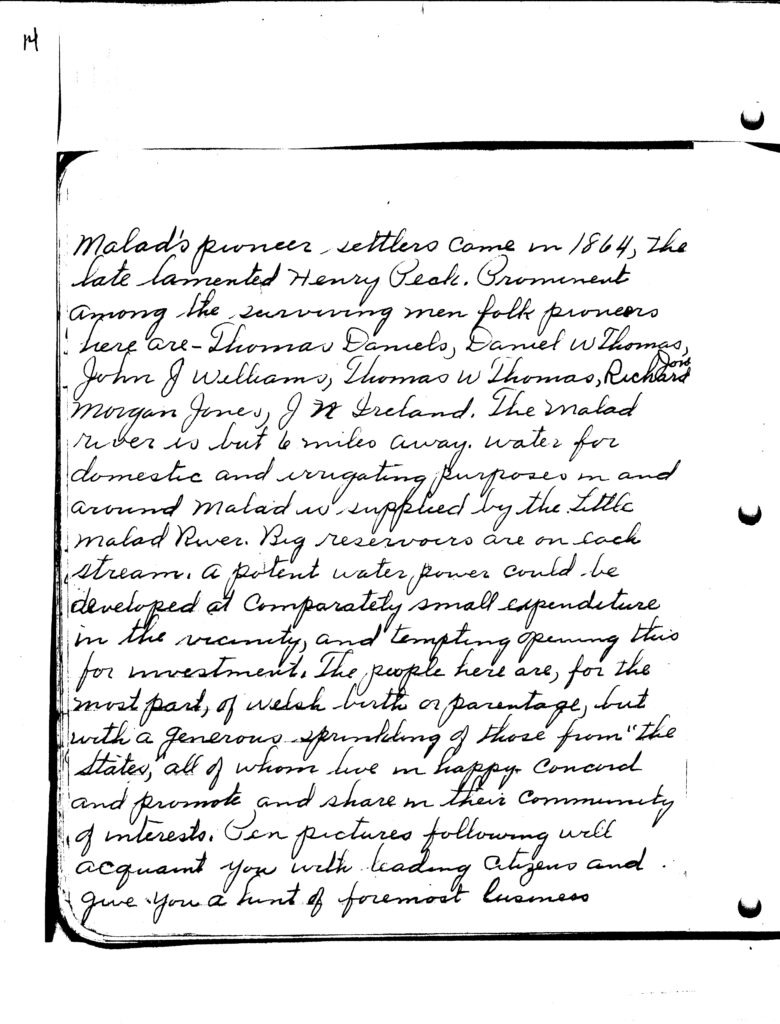 14
Malad's pioneer settlers came in 1864, the
late lamented Henry Peck. Prominent
among the surviving men folk pioneers
here are - Thomas Daniels, Daniel W Thomas,
John J Williams, Thomas W Thomas, Richard Jones
Morgan Jones, J N Ireland. The Malad
river is but 6 miles away. water for
domestic and irrigating purposes in and
around Malad is supplied by the Little
Malad River. Big reservoirs are on each
stream. A potent water power could be
developed at Comparately small expenditure
in the vicinity, and tempting opening this
for investment. The people here are, for the
most part, of Welsh birth or parentage, but
with a generous sprinkling of those from "the
States," all of whom live in happy Concord
and promote and share in their Community
of interests. Pen pictures following will
acquaint you with leading Citizens and
give you a hint of foremost business